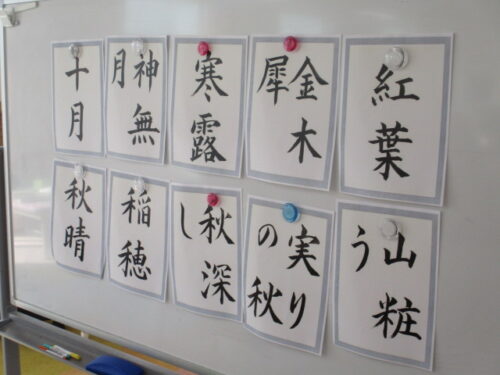 十月
神無
月
寒露
金木
犀
紅葉
秋晴
稲穂
秋深
し
実り
の秋
山粧
う